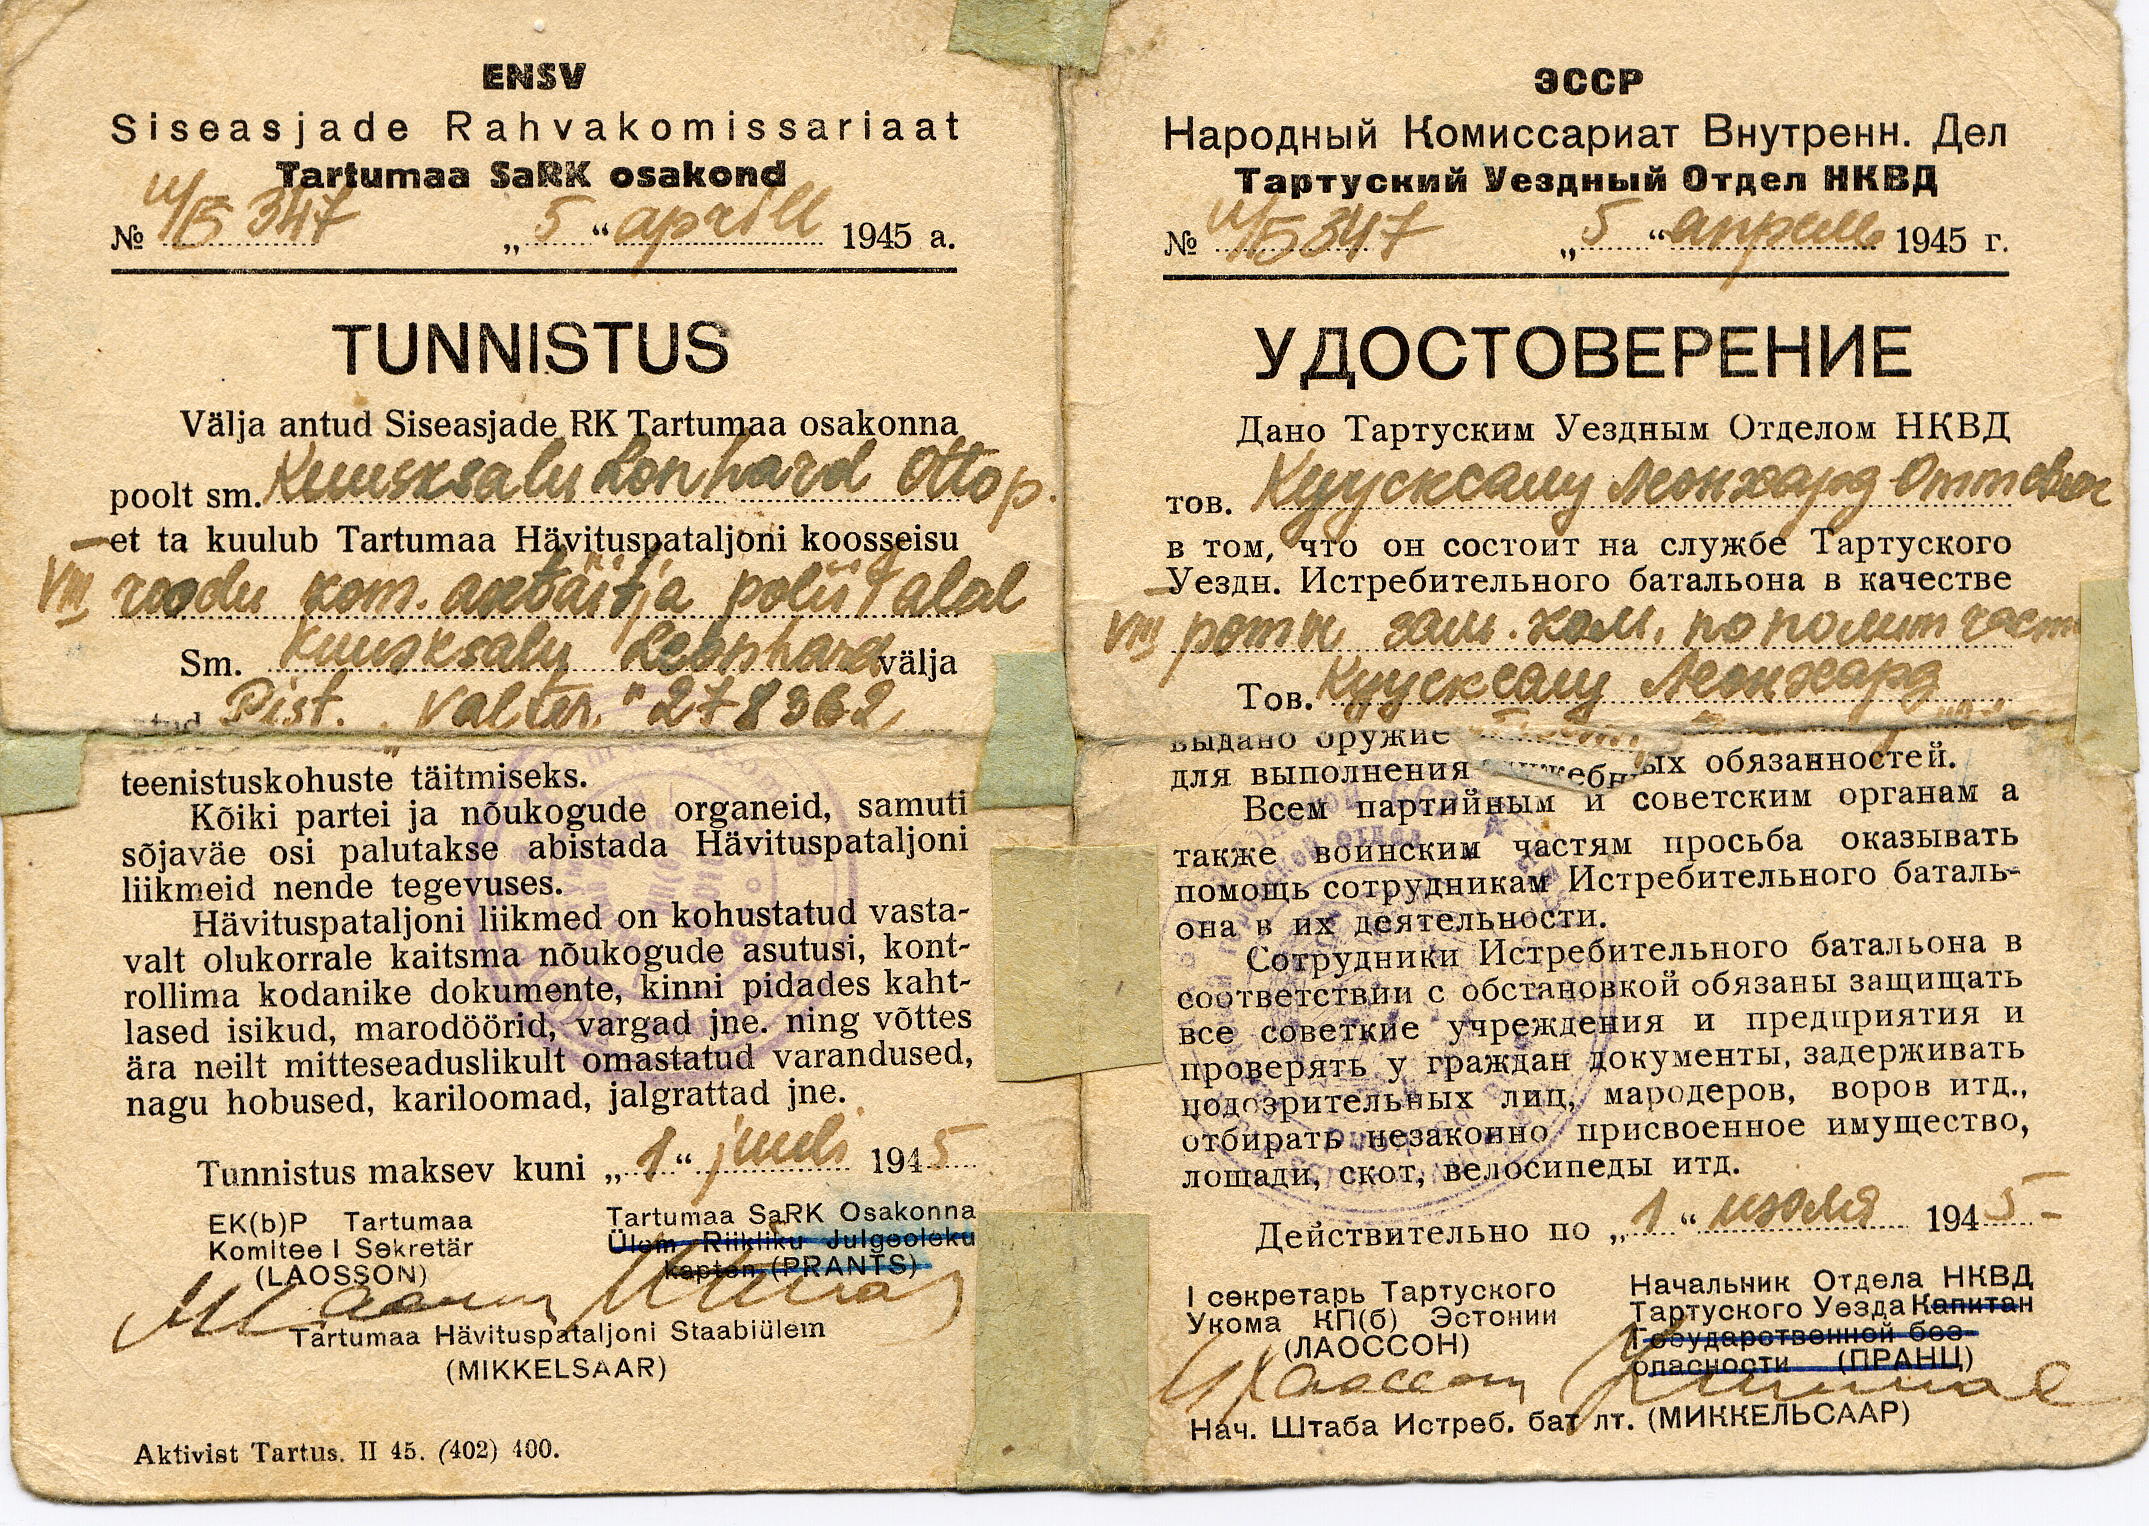 ENSV
Siseasjade Rahvakomissariaat
Tartumaa SaRK osakond
№ 347 „5“ aprill 1945 a.
TUNNISTUS
Välja antud Siseasjade RK Tartumaa osakonna
poolt sm. Kuusksalu Leonhard Otto p.
et ta kuulub Tartumaa Hävituspataljoni koosseisu
VIII roodu kom. asetäitja poliit alal
Sm. Kuusksalu Leonhard välja
Pist. „Valter.“ 278362
teenistuskohuste täitmiseks.
Kõiki partei ja nõukogude organeid, samuti
sõjaväe osi palutakse abistada Hävituspataljoni
liikmeid nende tegevuses.
Hävituspataljoni liikmed on kohustatud vasta-
valt olukorrale kaitsma nõukogude asutusi, kont-
rollima kodanike dokumente, kinni pidades kaht-
lased isikud, marodöörid, vargad jne. ning võttes
ära neilt mitteseaduslikult omastatud varandused,
nagu hobused, kariloomad, jalgrattad jne.
Tunnistus maksev kuni „1“ juuli 1945
EK(b)P Tartumaa
Komitee I Sekretär
(LAOSSON)
Tartumaa SaRK Osakonna
Ülem Riikliku Julgeoleku
kapten (PRANTS)
Tartumaa Hävituspataljoni Staabiülem
(MIKKELSAAR)
Aktivist Tartus. II 45. (402) 400.
ЭССР
Народный Комиссариат Внутренн. Дел
Тартуский Уездный Отдел НКВД
№ 347 „5“ апрель 1945 г.
УДОСТОВЕРЕНИЕ
Дано Тартуским Уездным Отделом НКВД
тов. Кууысксалу Леонхард Оттович
в том, что он состоит на службе Тартуского
Уездн. Истребительного батальона в качестве
VIII роты зам. ком. по полит части
Тов. Куусксалу Леонхард
выдано оружие
для выполнения служебных обязанностей.
Всем партийным и советским органам а
также воинским частям просьба оказывать
помощь сотрудникам Истребительного баталь-
она в их деятельности.
Сотрудники Истребительного батальона в
соответствии с обстановкой обязаны защищать
все советкие учреждения и предприятия и
проверять у граждан документы, задерживать
подозрительных лиц, мародеров, воров итд.,
отбирать незаконно присвоенное имущество,
лошади, скот, велосипеды итд.
Действительно по „1“ июля 1945
I секретарь Тартуского
Укома КП(б) Эстонии
(ЛАОССОН)
Начальник Отдела НКВД
Тартуского Уезда Капитан
Государственной без-
опасности (ПРАНЦ)
Нач. Штаба Истреб. бат лт. (МИККЕЛЬСААР)